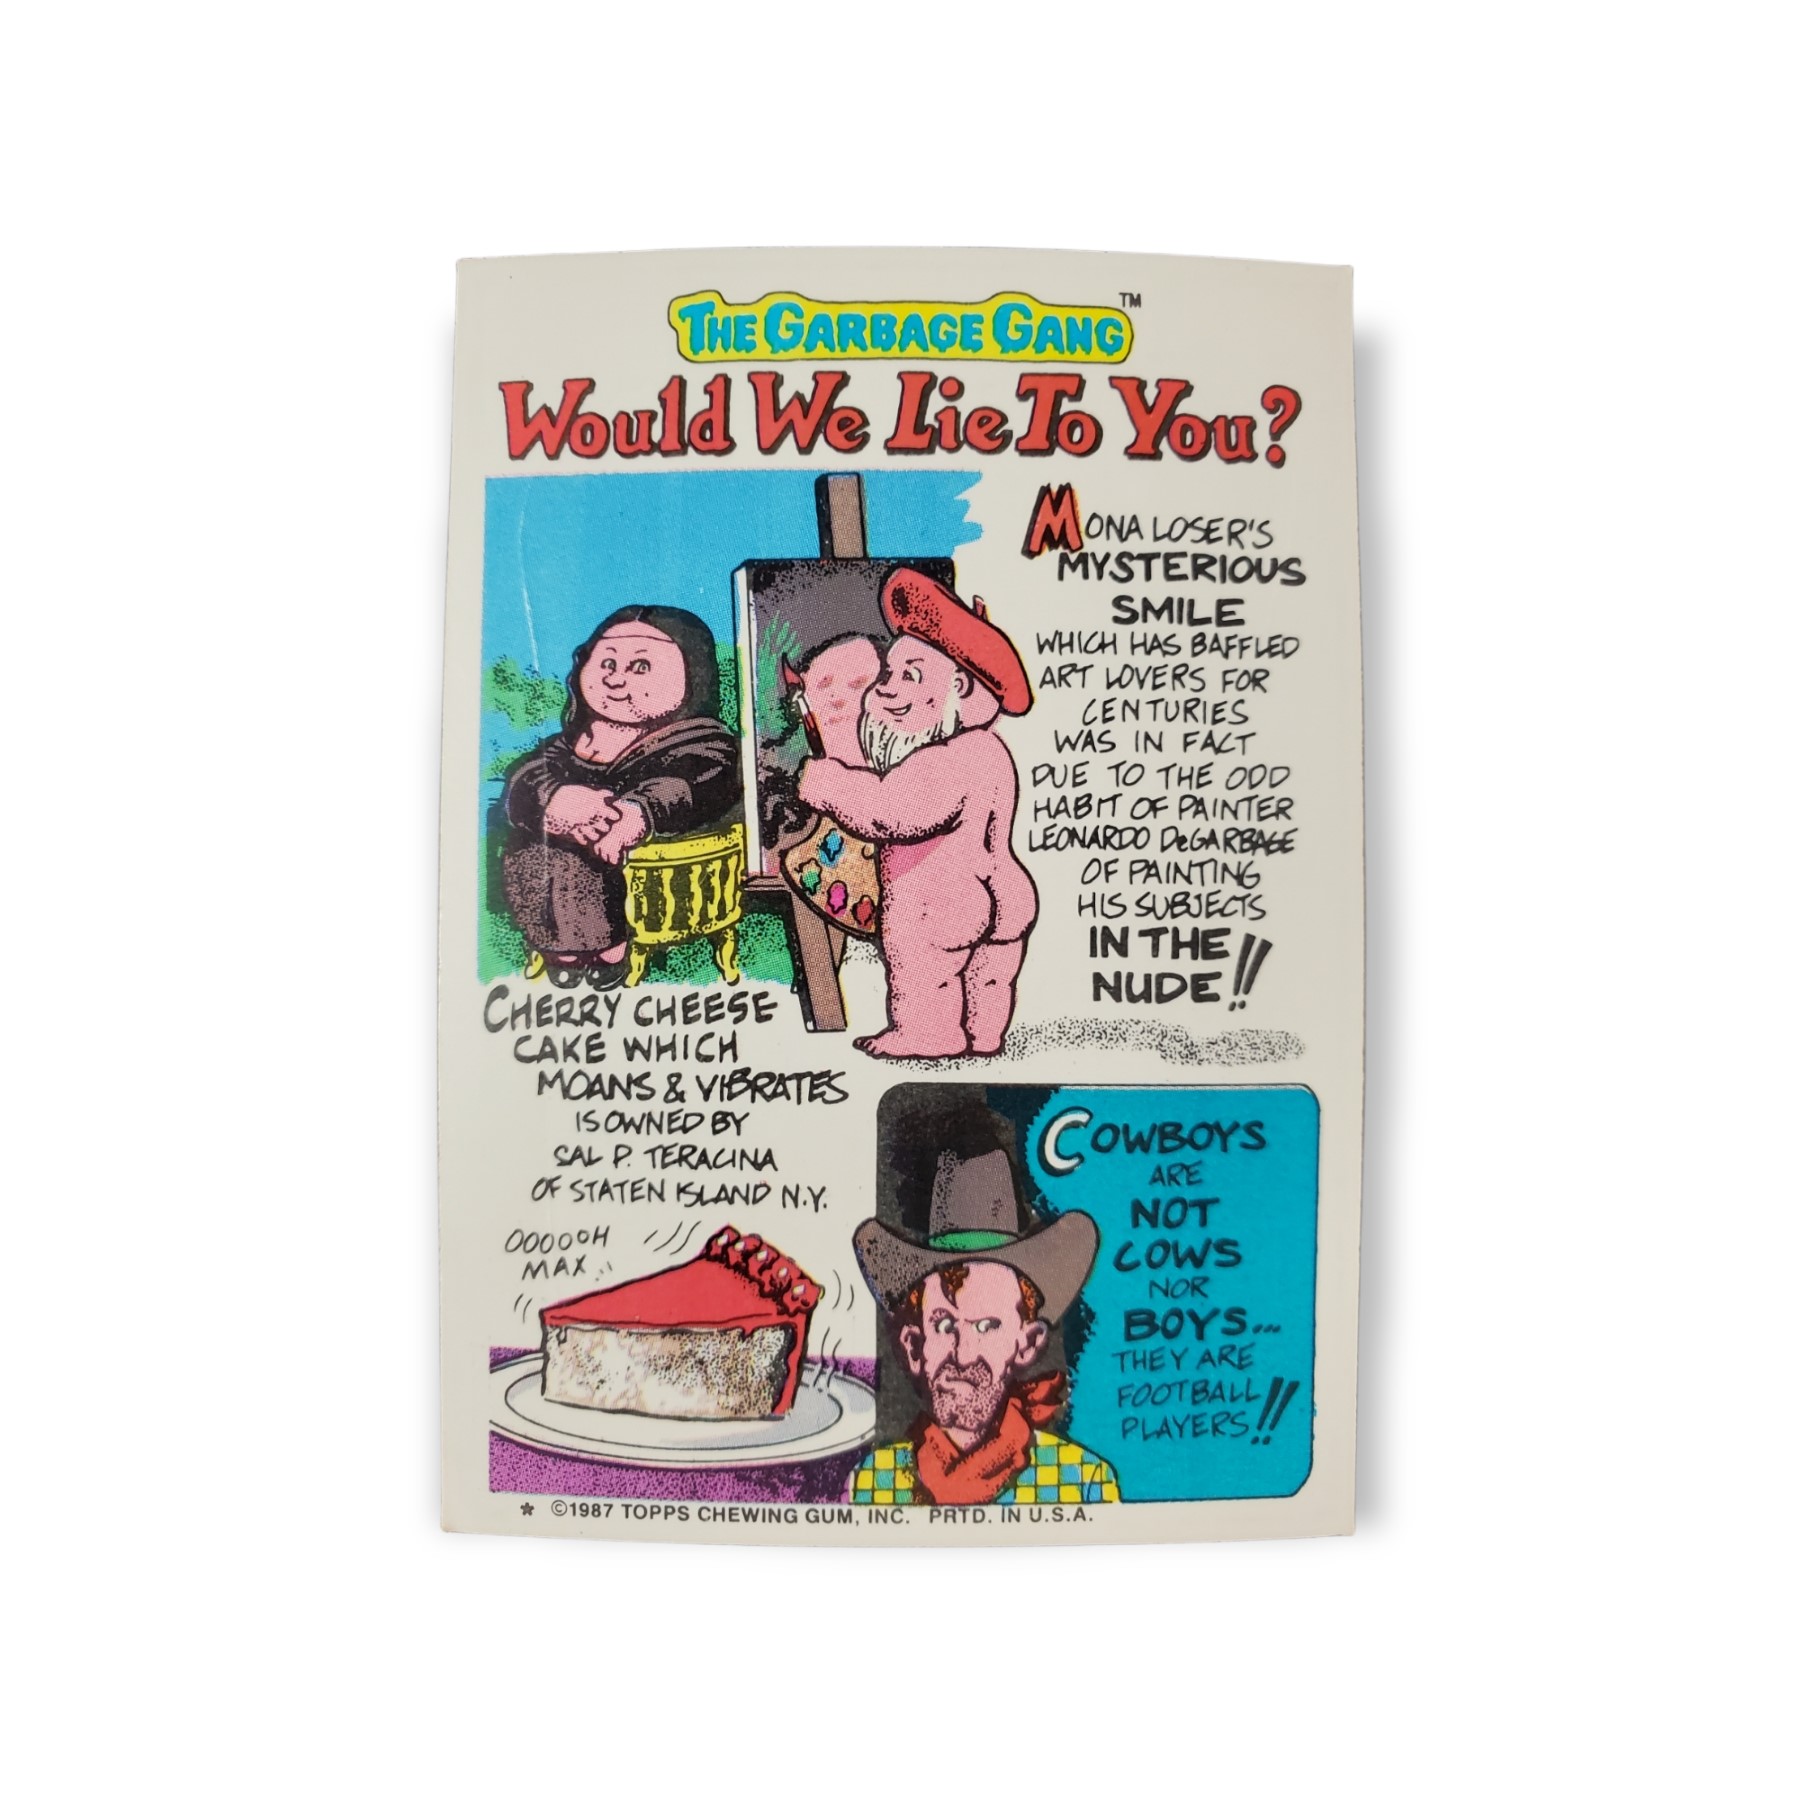 THE GARBAGE GANG™
Would We Lie To You?
MONA LOSER'S
MYSTERIOUS
SMILE
WHICH HAS BAFFLED
ART LOVERS FOR
CENTURIES
WAS IN FACT
DUE TO THE ODD
HABIT OF PAINTER
LEONARDO DeGARBAGE
OF PAINTING
HIS SUBJECTS
IN THE
NUDE!!
CHERRY CHEESE
CAKE WHICH
MOANS & VIBRATES
IS OWNED BY
SAL P. TERACINA
OF STATEN ISLAND N.Y.
OOOOOH
MAX..
COWBOYS
ARE
NOT
COWS
NOR
BOYS...
THEY ARE
FOOTBALL
PLAYERS!!
* ©1987 TOPPS CHEWING GUM, INC. PRTD. IN U.S.A.